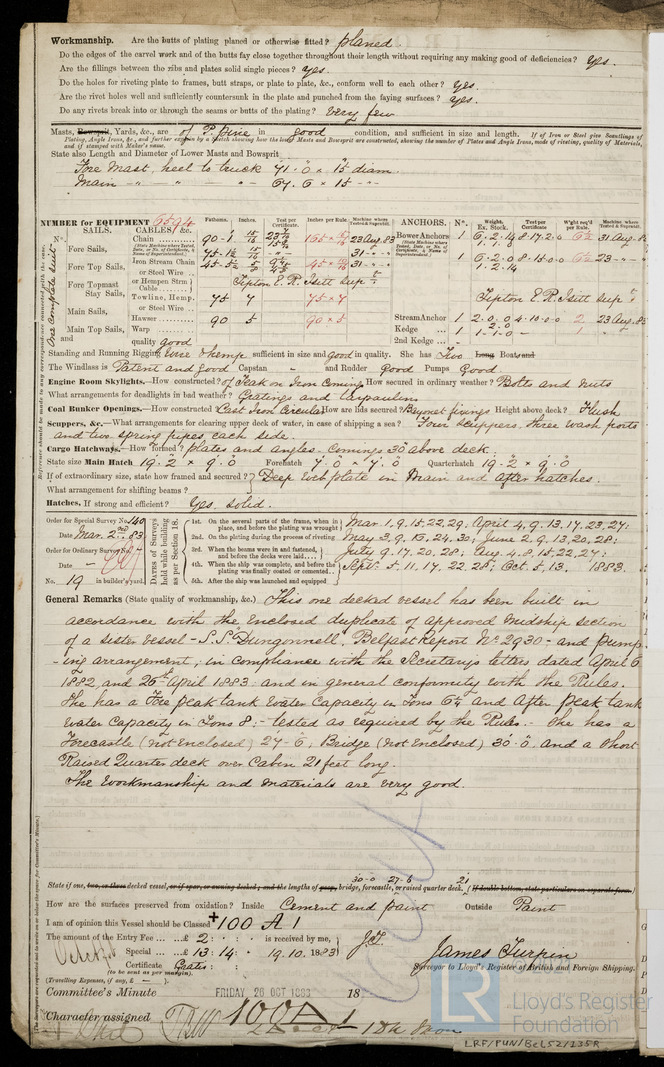 Workmanship. Are the butts of plating planed or otherwise fitted? planed
Do the edges of the carvel work and of the butts fay close together throughout their length without requiring any making good of deficiencies? Yes.
Are the fillings between the ribs and plates solid single pieces? Yes.
Do the holes for riveting plate to frames, butt straps, or plate to plate, &c., conform well to each other? Yes.
Are the rivet holes well and sufficiently countersunk in the plate and punched from the faying surfaces? Yes.
Do any rivets break into or through the seams or butts of the plating? Very few
Masts, Bowsprit, Yards, &c., are of P. Pine in good condition, and sufficient in size and length. If of Iron or Steel give Scantlings of
Plating, Angle Irons, &c., and further explain by a sketch showing how the lower Masts and Bowsprit are constructed, showing the number of Plates and Angle Irons, mode of riveting, quality of Materials,
and if stamped with Maker's name.
State also Length and Diameter of Lower Masts and Bowsprit
Fore Mast, heel to truck 71.0 x 15 diam.
Main 67.6 x 15
NUMBER for EQUIPMENT 6594
SAILS. CABLES, &c. Fathoms. Inches. Test per Certificate. Inches per Rule. ANCHORS. Nº. Weight. Ex. Stock. Test per Certificate Wight req'd per Rule.
Nº.
Fore Sails, Chain 90-1 15/16 23 Aug. 83 Bower Anchors 1 6.2.14 8.17.2.0 31 Aug. 83
Fore Top Sails, Iron Stream Chain 1 6.2.0 8.15.0.0
or Steel Wire .. 1.2.14
Fore Topmast Stay Sails, or Hempen Strm Cable Tipton E.R. Isitt Sup
Main Sails, Towline, Hemp. 75 7 75 x 7 Tipton E.R. Isitt Sup
or Steel Wire ..
Hawser 90 5 90 x 5 Stream Anchor 1 2.0.0 4.10.0.0 2 23 Aug. 83
Main Top Sails, Warp Kedge 1 1.1.0 1
and quality good 2nd Kedge
One complete suit
Standing and Running Rigging Wire & hemp sufficient in size and good in quality. She has Two Long Boat and
The Windlass is Patent and good Capstan and Rudder Good Pumps Good.
Engine Room Skylights.—How constructed? of Teak on Iron Coming How secured in ordinary weather? Bolts and nuts
What arrangements for deadlights in bad weather? Gratings and tarpaulins
Coal Bunker Openings.—How constructed? Cast Iron circular How are lids secured? Bayonet fixings Height above deck? Flush
Scuppers, &c.—What arrangements for clearing upper deck of water, in case of shipping a sea? Four scuppers, three wash ports
and two spring pipes each side.
Cargo Hatchways.—How formed? plates and angles. Comings 30" above deck.
State size Main Hatch 19.2 x 9.0 Forehatch 7.0 x 7.0 Quarterhatch 19.2 x 9.0
If of extraordinary size, state how framed and secured? Deep Web plate in Main and After hatches.
What arrangement for shifting beams?
Hatches. If strong and efficient? Yes. Solid.
Order for Special Survey No. 140
Date Mar. 2nd 83
Order for Ordinary Survey No.
Date —
No. 19 in builder's yard.
DATES of Surveys held while building as per Section 18.
1st. On the several parts of the frame, when in place, and before the plating was wrought
2nd. On the plating during the process of riveting
3rd. When the beams were in and fastened, and before the decks were laid
4th. When the ship was complete, and before the plating was finally coated or cemented
5th. After the ship was launched and equipped
Mar. 1, 9, 15, 22, 29; April 4, 9, 13, 17, 23, 27;
May 3, 9, 15, 24, 30; June 2, 9, 13, 20, 28;
July 9, 17, 20, 28; Aug. 4, 8, 15, 22, 27;
Sept. 5, 11, 17, 22, 28; Oct. 5, 13, 1883.
General Remarks (State quality of workmanship, &c.) This one decked vessel has been built in
acordance with the enclosed duplicate of approved Midship section
of a sister vessel - S.S. Dungonnell, Belfast Report Nº 2930 - and pump
-ing arrangement; in compliance with the Secretarys letters, dated April 6
1882, and 26th April 1883 - and in general conformity with the Rules.
She has a Fore peak tank Water Capacity in Tons 6¼ and After peak tank
Water Capacity in Tons 8; - tested as required by the Rules. - She has a
Forecastle (not Enclosed) 27-6, Bridge (not Enclosed) 30.0, and a short
Raised Quarter deck over Cabin 21 feet long.
The Workmanship and materials are very good.
30-0 27-6 21
State if one, two, or three decked vessel, or if spar, or awning decked; and the lengths of poop, bridge, forecastle, or raised quarter deck. (If double bottom, state particulars on separate form.)
How are the surfaces preserved from oxidation? Inside Cement and paint Outside Paint
I am of opinion this Vessel should be Classed +100 A 1
The amount of the Entry Fee ... £ 2 : : is received by me, J.T.
Special ... £ 13 : 14 : 19.10.1883
Certificate Gratis
(to be sent as per margin).
(Travelling Expenses, if any, £ —)
James Turpin
Surveyor to Lloyd's Register of British and Foreign Shipping.
Committee's Minute FRIDAY 26 OCT 1883 18
Character assigned 100A1
LR
Lloyd's Register
Foundation
LRF/PUN/BEL52/135R